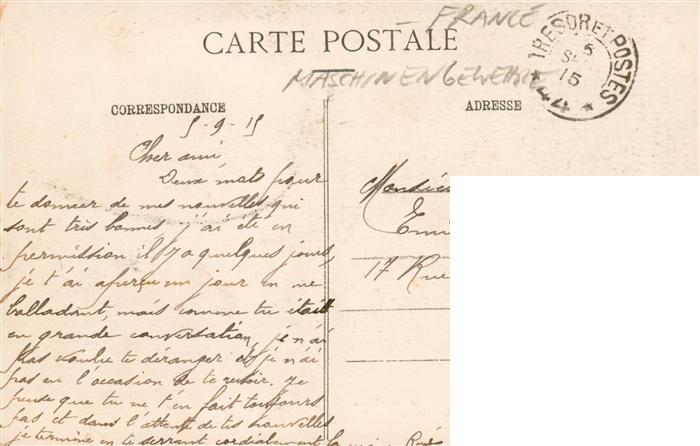 - FRANCE
CARTE POSTALE
MASCHINENGEWEHRE
TRESOR ET POSTES
5
15
* 44 *
CORRESPONDANCE
ADRESSE
5-9-15
Cher ami,
Deux mots pour
te donner de mes nouvelles qui
sont très bonnes, j'ai été en
permission il y a quelques jours,
je t'ai aperçu un jour en me
balladant, mais comme tu était
en grande conversation, je n'ai
pas voulu te déranger et je n'ai
pas eu l'occasion de te revoir. Je
pense que tu ne t'en fait toujours
pas et dans l'attente de tes nouvelles
je termine en te serrant cordialement la
Monsieur
Emi
17 Rue
René